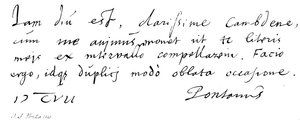 Iam diú est, clarissime Cambdene,
cúm me animus monet ut te literis
meis ex intervallo compellarem. Facio
ergo, idq; duplici modò oblata occasione.
Pontanus